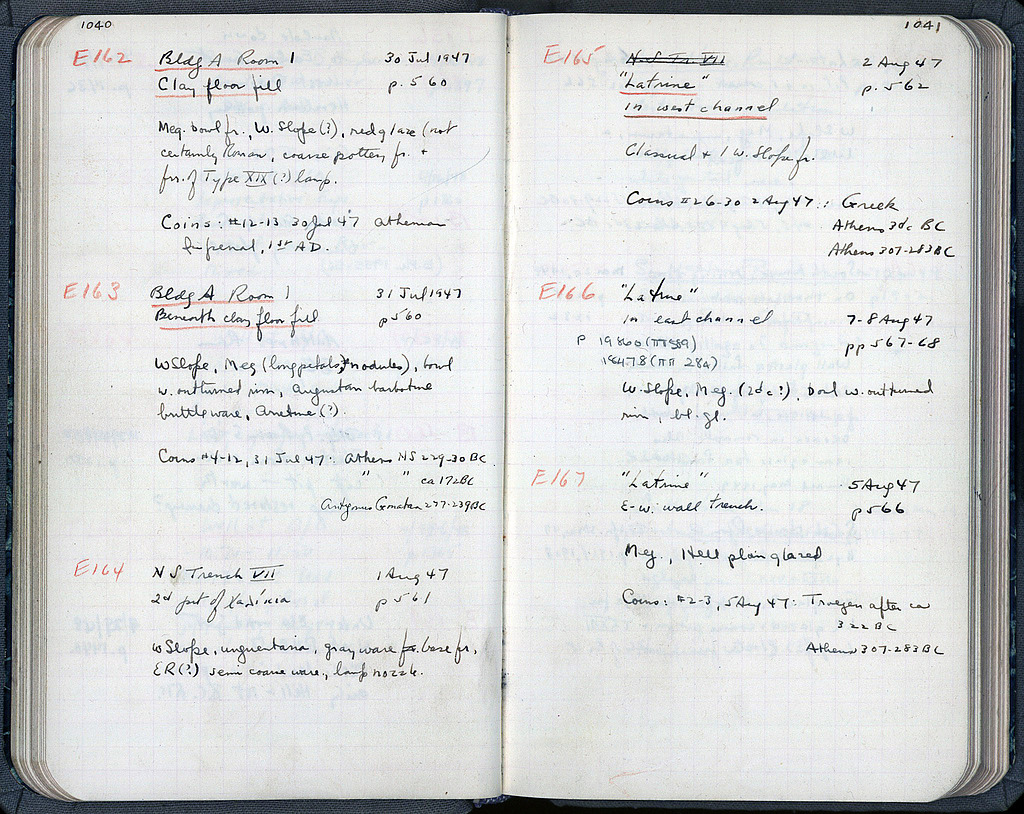 1040
E162 Bldg A Room 1 30 Jul 1947
Clay floor fill p. 560
Meg. bowl fr., W. Slope (?), red glaze (not
certainly Roman, coarse pottery fr. +
frr. of Type XIX (?) lamp.
Coins: #12-13 30 Jul 47 Athenian
Imperial, 1st AD.
E163 Bldg A Room 1 31 Jul 1947
Beneath clay floor fill p 560
W Slope, Meg (long petals, nodules), bowl
w. outturned rim, Augustan barbotine
brittle ware, Arretine (?).
Coins #4-12, 31 Jul 47: Athens NS 229-30 BC
" " ca 172 BC
Antigonus Gonatas 277-239 BC
E164 N S Trench VII 1 Aug 47
2nd part of p 561
W Slope, unguentaria, gray ware base fr.,
ER (?) semi coarse ware, lamp nozzle.
1041
E165 N-S Tr. VII 2 Aug 47
"Latrine" p. 562
in west channel
Classical + 1 W. Slope fr.
Coins #26-30 2 Aug 47: Greek
Athens 3d c BC
Athens 307-283 BC
E166 "Latrine"
in east channel 7-8 Aug 47
P 19860 (ΠΠ 589) pp 567-68
18478 (ΠΠ 28a)
W. Slope, Meg. (2d c?), bowl w. outturned
rim, bl. gl.
E167 "Latrine" 5 Aug 47
E-W. wall trench. p 566
Meg., Hell plain glazed
Coins: #2-3, 5 Aug 47: Troezen after ca
322 BC
Athens 307-283 BC